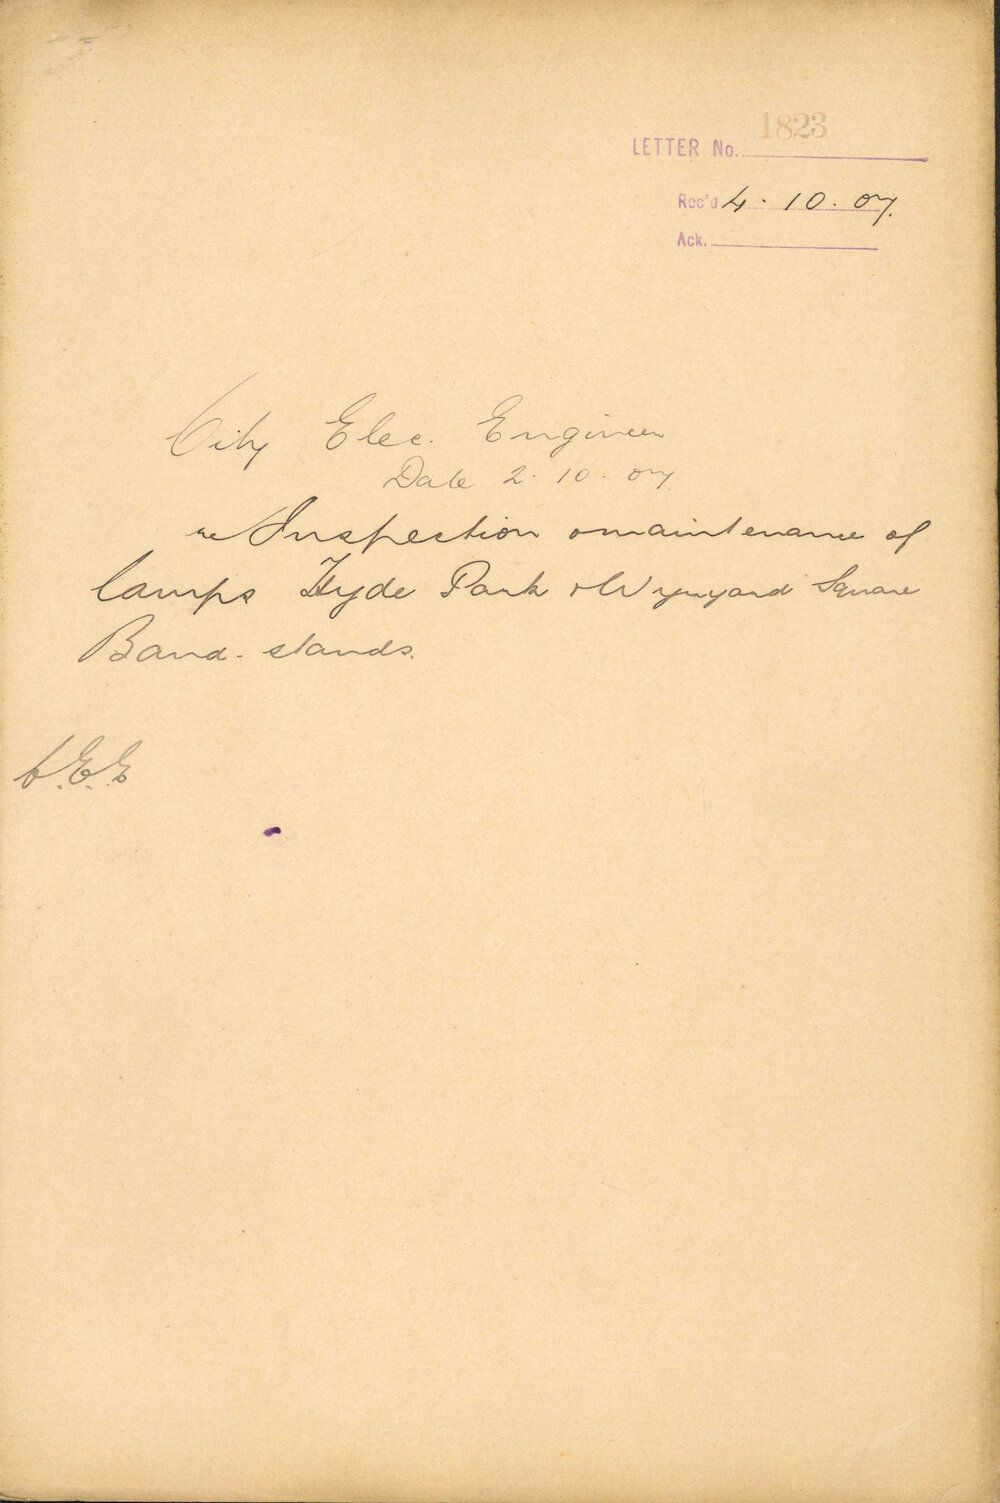 1823
LETTER No.
Rec'd 4. 10. 07.
Ack.
City Elec. Engineer
Date 2. 10. 07.
re Inspection & maintenance of
lamps Hyde Park & Wynyard Square
Band-stands.
C.E.E